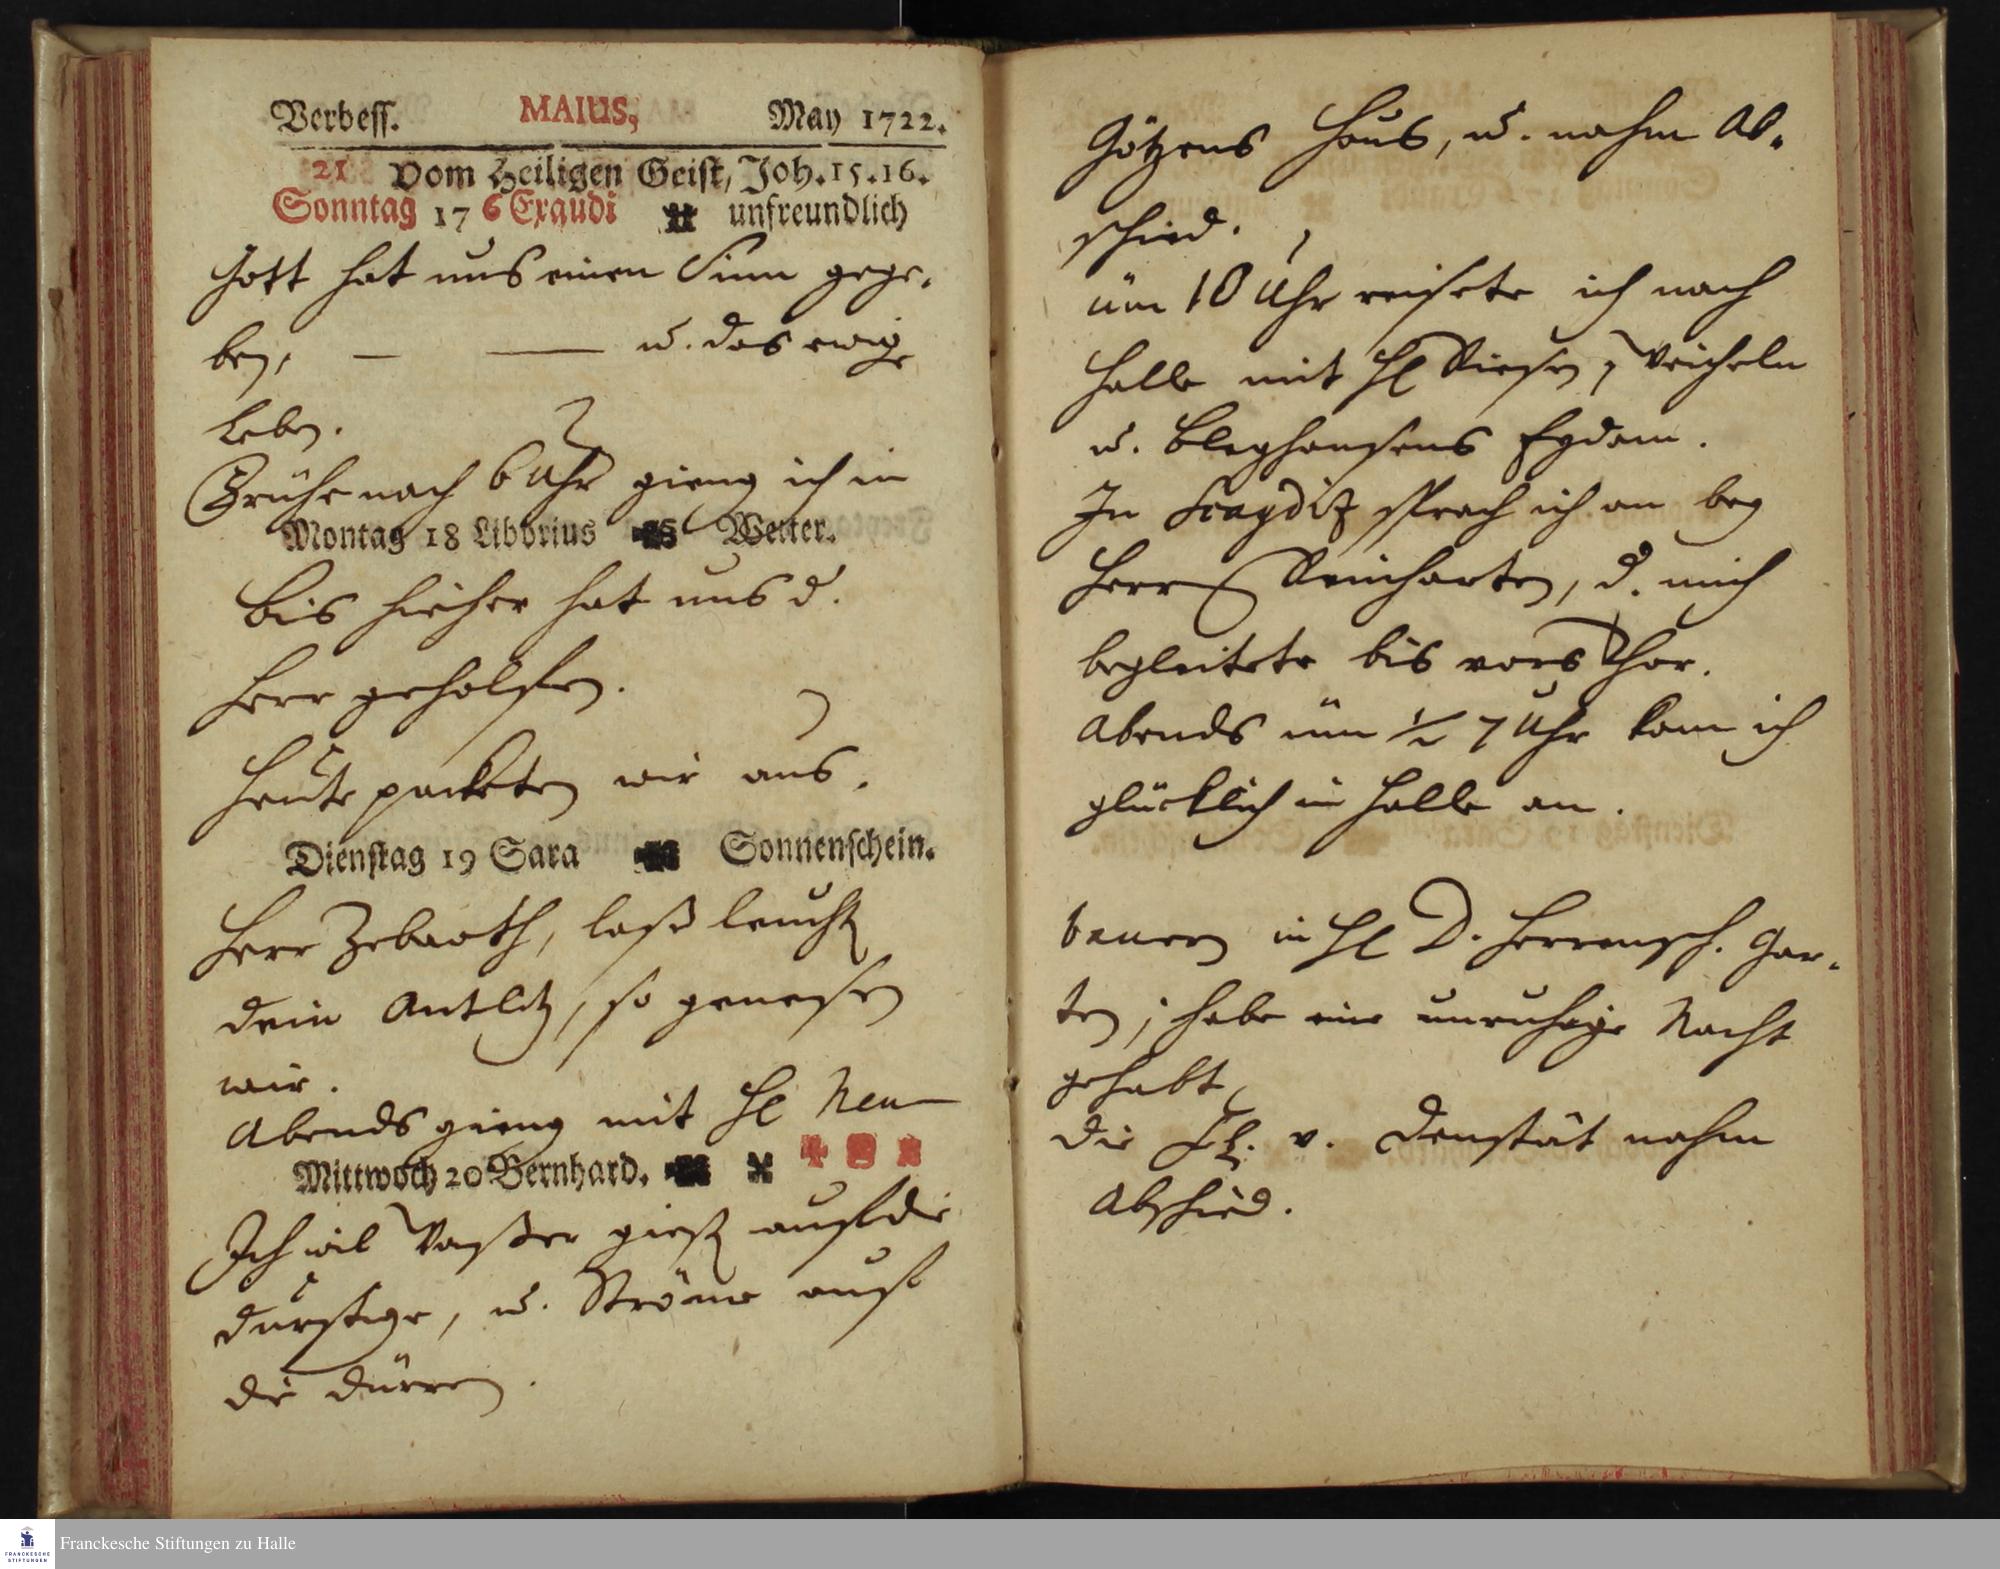 Verbess. MAIUS, May 1722.
21 Vom Heiligen Geist, Joh. 15. 16.
Sonntag 17 6 Exaudi unfreundlich
Gott hat uns einen Sinn gege-
ben, — — u. das ewige
Leben.
Frühe nach 6 Uhr gieng ich in
Montag 18 Liborius Wetter.
Bis hieher hat uns d.
Herr geholffen.
Heute packeten wir aus.
Dienstag 19 Sara Sonnenschein.
Herr Zebaoth, laß leucht
dein Antlitz, so genesen
wir.
Abends gieng mit H. Neu-
Mittwoch 20 Bernhard.
Ich wil Waßer gieß auf die
durstige, u. Ströme auf
die dürren.
Götzens Hauß, u. nahm Ab-
schied.
üm 10 Uhr reisete ich nach
Halle mit H. Riesen, Weicheln
u. Eydam.
In sprach ich an bey
Herrn Reinharten, d. mich
begleitete bis vors Thor.
Abends üm ½ 7 Uhr kam ich
glücklich in Halle an.
bauern in H. D. Herrensch. Gar-
ten; habe eine unruhige Nacht
gehabt,
die v. Denstät nahm
Abschied.
Franckesche Stiftungen zu Halle
FRANCKESCHE
STIFTUNGEN